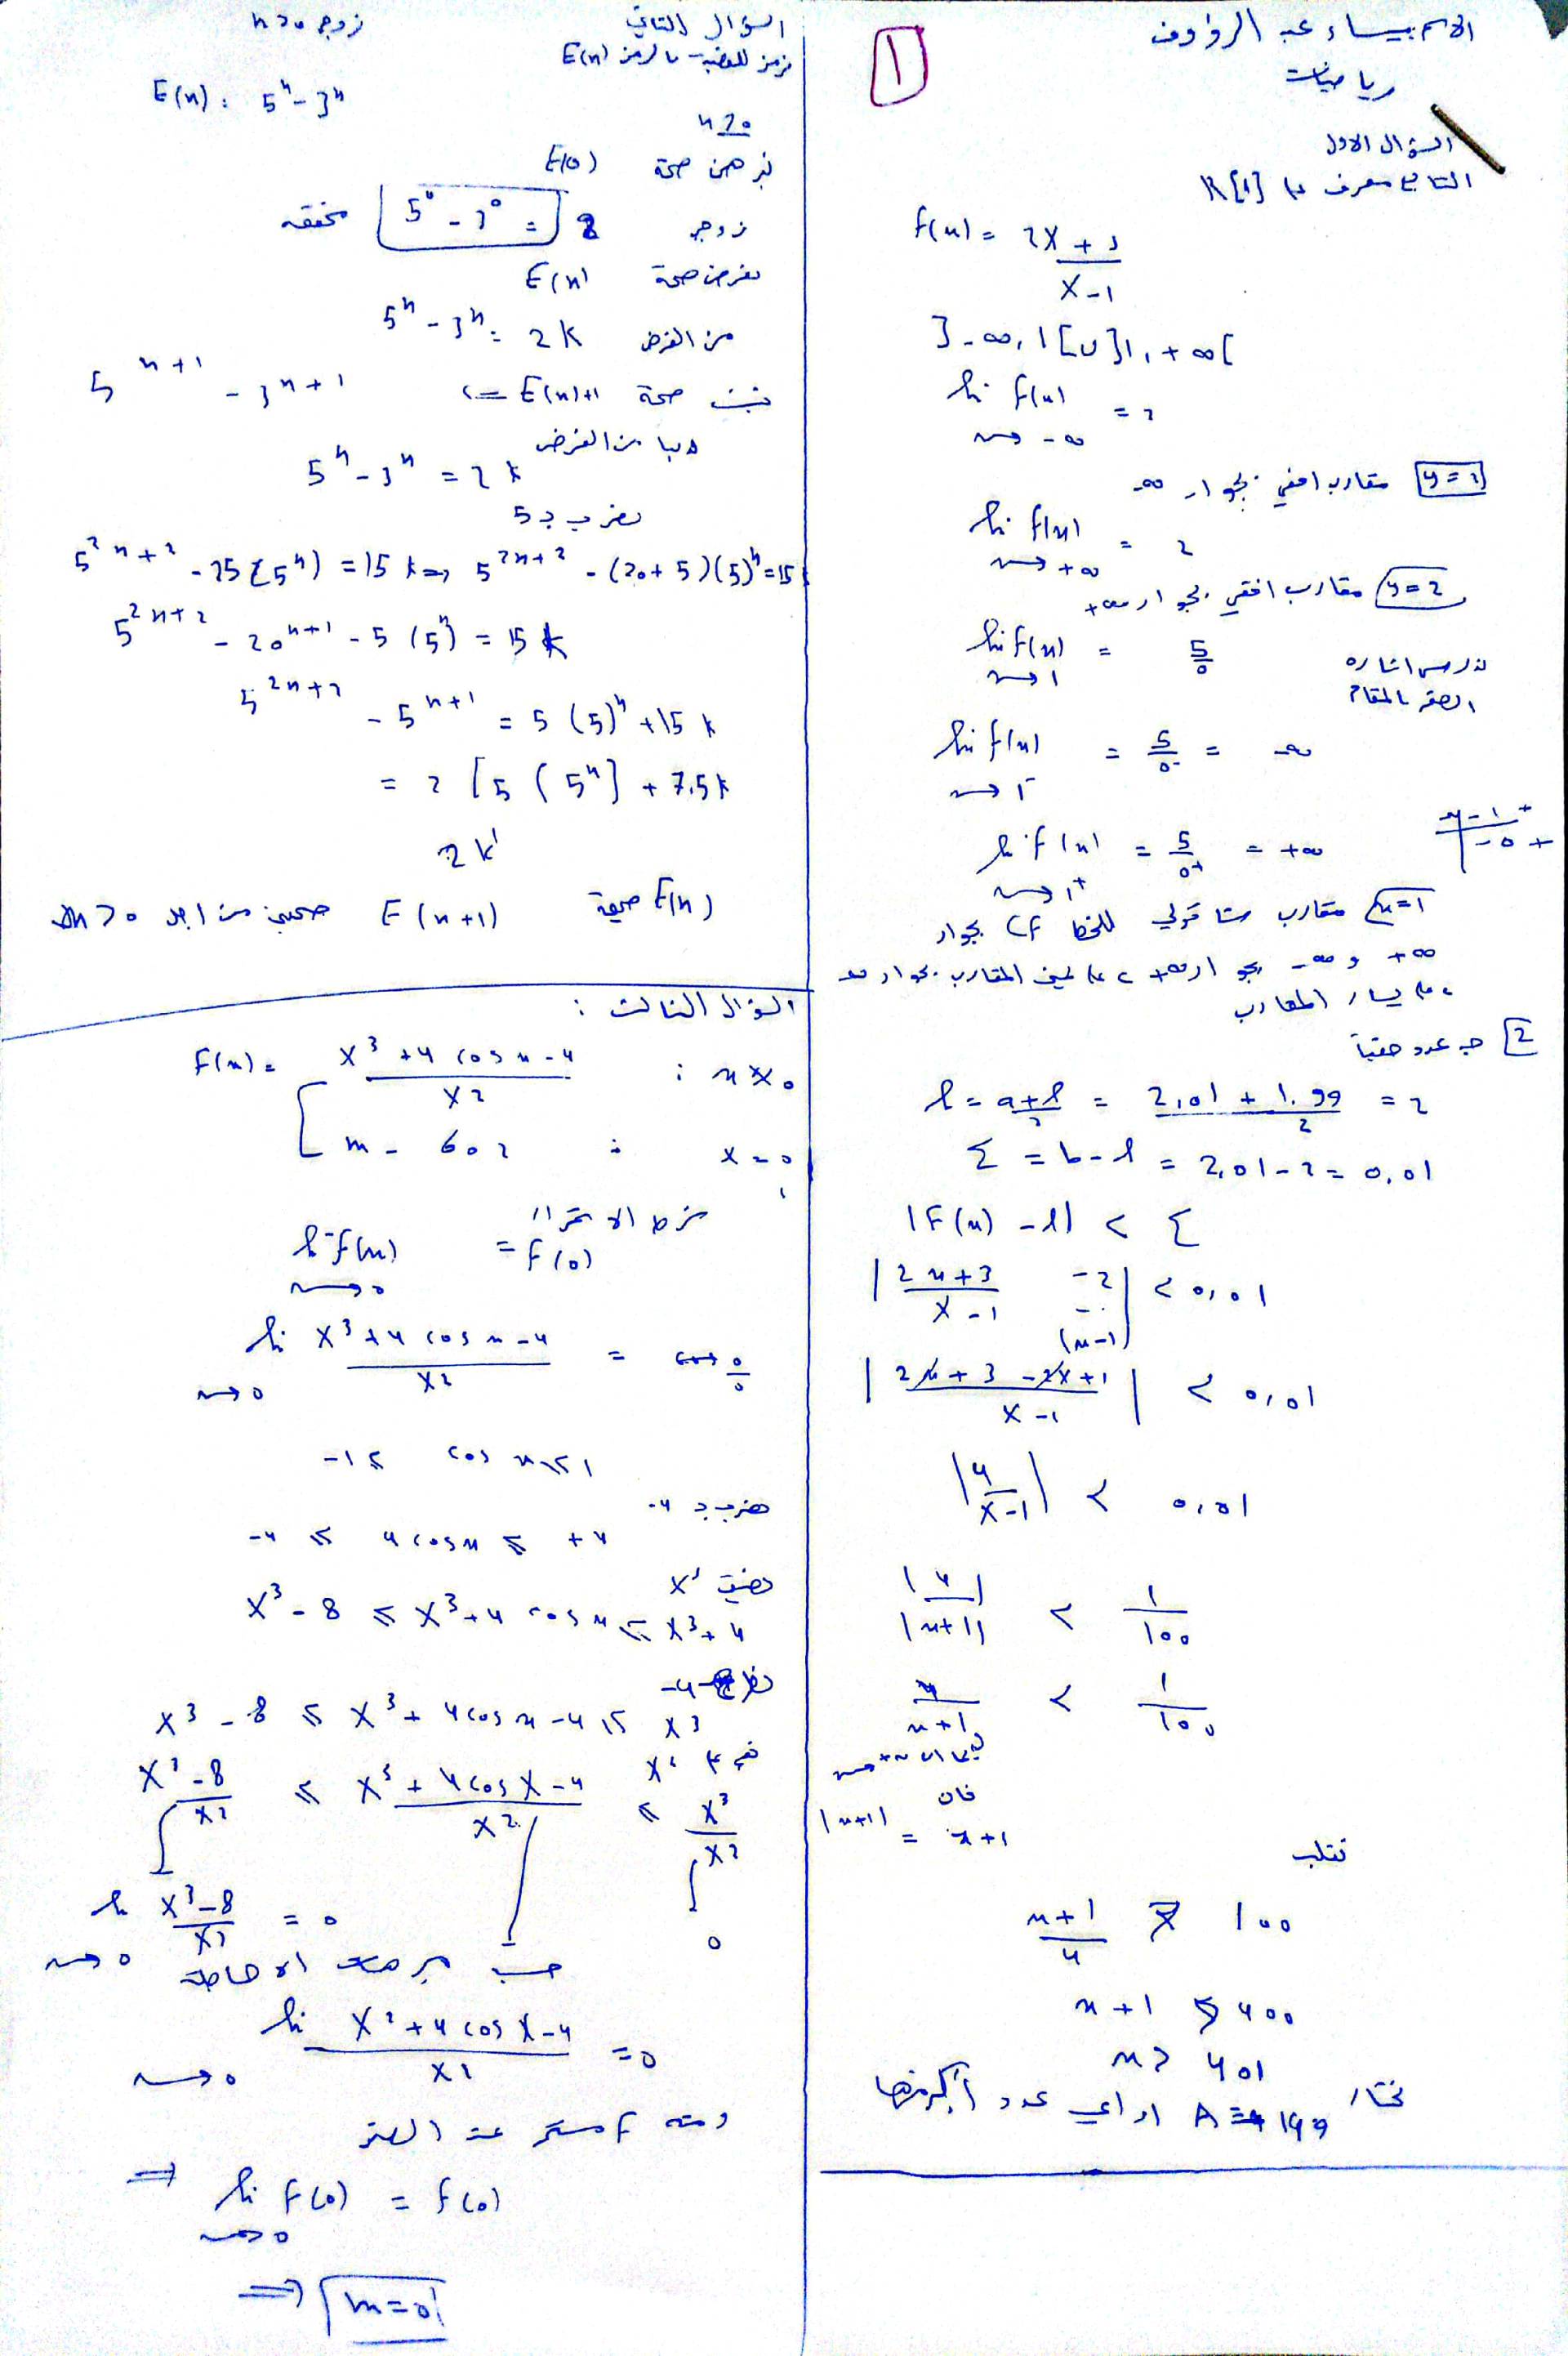 الاسم بيساء عبد الرؤوف
رياضيات
1
السؤال الاول
التابع معرف على R[1]
f(x) = 2x + 3
x - 1
]-∞, 1[ U ]1, +∞[
lim f(x) = 2
x → -∞
y = 2 مقارب افقي بجوار -∞
lim f(x) = 2
x → +∞
y = 2 مقارب افقي بجوار +∞
lim f(x) = 5/0
x → 1
ندرس اشارة
الصفر بالمقام
lim f(x) = 5/0- = -∞
x → 1-
lim f(x) = 5/0+ = +∞
x → 1+
x - 1
- 0 +
x = 1 مقارب شاقولي للخط C f بجوار
+∞ و -∞
على يسار المقارب
2
l = a + b / 2 = 2,01 + 1.99 / 2 = 2
Σ = b - l = 2,01 - 2 = 0,01
|F(x) - l| < Σ
| 2x + 3 / x - 1 - 2 | < 0,01
(x-1)
| 2x + 3 - 2x + 1 / x - 1 | < 0,01
| 4 / x - 1 | < 0,01
|4| / |x+1| < 1 / 100
4 / x + 1 < 1 / 100
بما ان x → +∞
فان
|x+1| = x + 1
نقلب
x + 1 / 4 > 100
x + 1 > 400
x > 401
نختار A = 499 او اي عدد أكبر منها
السؤال الثاني
نرمز للقضية بالرمز E(n)
زوجي n ≥ 0
E(n) : 5^n - 3^n
n ≥ 0
نبرهن صحة E(0)
5^0 - 3^0 = 2 زوجي محققة
نفرض صحة E(n)
من الفرض 5^n - 3^n = 2k
نثبت صحة E(n)+1 <=
5^n+1 - 3^n+1
لدينا من الفرض
5^n - 3^n = 2k
نضرب بـ 5
5^2n+2 - 25(5^n) = 15k => 5^2n+2 - (20 + 5)(5)^n = 15
5^2n+2 - 20^n+1 - 5(5^n) = 15k
5^2n+2 - 5^n+1 = 5(5)^n + 15k
= 2 [5(5^n] + 7.5k
2k'
E(n) صحيحة E(n+1) صحيحة من اجل n ≥ 0
السؤال الثالث :
F(x) = x^3 + 4 cos x - 4 / x^2 : x ≠ 0
m - 602 : x = 0
شرط الاستمرار
lim f(x) = f(0)
x → 0
lim x^3 + 4 cos x - 4 / x^2 = 0/0
x → 0
-1 ≤ cos x ≤ 1
نضرب بـ 4
-4 ≤ 4 cos x ≤ +4
نضيف x^3
x^3 - 8 ≤ x^3 + 4 cos x ≤ x^3 + 4
نطرح -4
x^3 - 8 ≤ x^3 + 4 cos x - 4 ≤ x^3
نقسم على x^2
x^3 - 8 / x^2 ≤ x^3 + 4 cos x - 4 / x^2 ≤ x^3 / x^2
lim x^3 - 8 / x^2 = 0
x → 0
0
حسب مبرهنة الاحاطة
lim x^2 + 4 cos x - 4 / x^2 = 0
x → 0
ومنه f مستمر عند الصفر
=> lim f(0) = f(0)
x → 0
=> m = 0